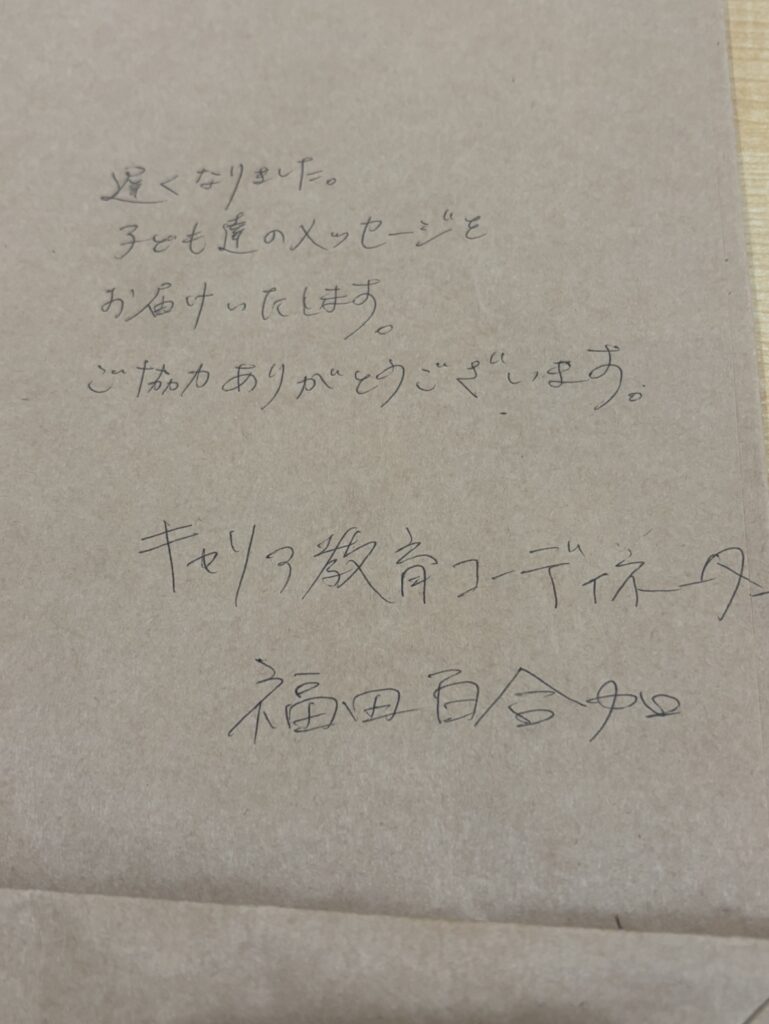 遅くなりました。
子ども達のメッセージを
お届けいたします。
ご協力ありがとうございます。
キャリア教育コーディネーター
福田百合加